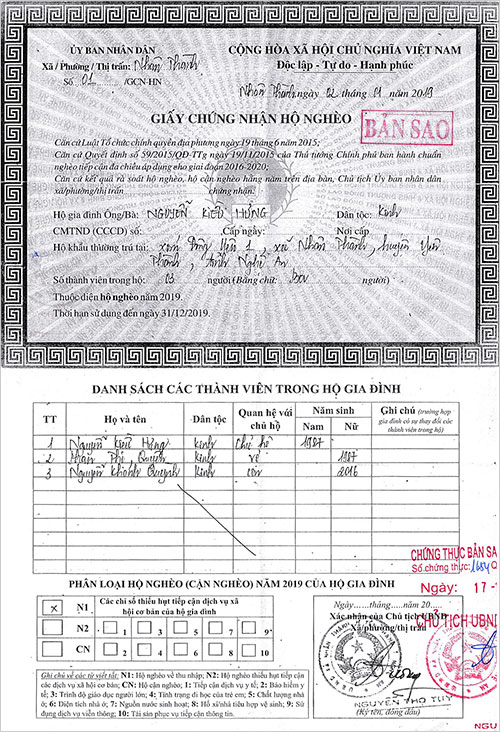 ỦY BAN NHÂN DÂN
Xã / Phường / Thị trấn: Nhân Thành
Số 01 /GCN-HN
CỘNG HÒA XÃ HỘI CHỦ NGHĨA VIỆT NAM
Độc lập - Tự do - Hạnh phúc
Nhân Thành, ngày 02 tháng 01 năm 2019
GIẤY CHỨNG NHẬN HỘ NGHÈO
BẢN SAO
Căn cứ Luật Tổ chức chính quyền địa phương ngày 19 tháng 6 năm 2015;
Căn cứ Quyết định số 59/2015/QĐ-TTg ngày 19/11/2015 của Thủ tướng Chính phủ ban hành chuẩn
nghèo tiếp cận đa chiều áp dụng cho giai đoạn 2016-2020;
Căn cứ kết quả rà soát hộ nghèo, hộ cận nghèo hằng năm trên địa bàn, Chủ tịch Ủy ban nhân dân
xã/phường/thị trấn chứng nhận:
Hộ gia đình Ông/Bà: NGUYỄN KIỀU HƯNG Dân tộc: Kinh
CMTND (CCCD) số: Cấp ngày: Nơi cấp
Hộ khẩu thường trú tại: xóm Đông Yên 1, xã Nhân Thành, huyện Yên
Thành, tỉnh Nghệ An
Số thành viên trong hộ: 03 người (Bằng chữ: Ba người)
Thuộc diện hộ nghèo năm 2019.
Thời hạn sử dụng đến ngày 31/12/2019.
DANH SÁCH CÁC THÀNH VIÊN TRONG HỘ GIA ĐÌNH
TT Họ và tên Dân tộc Quan hệ với chủ hộ Năm sinh Nam Nữ Ghi chú (trường hợp gia đình có sự thay đổi các thành viên trong hộ)
1 Nguyễn Kiều Hưng Kinh Chủ hộ 1987
2 Thị Quỳnh Kinh vợ 1987
3 Nguyễn Khánh Quỳnh Kinh con 2016
CHỨNG THỰC BẢN SA
Số chứng thực: 1684 Q
Ngày: 17 -
CHỦ TỊCH UBN
PHÂN LOẠI HỘ NGHÈO (CẬN NGHÈO) NĂM 2019 CỦA HỘ GIA ĐÌNH
x N1 Các chỉ số thiếu hụt tiếp cận dịch vụ xã
hội cơ bản của hộ gia đình
N2 1 3 5 7 9
CN 2 4 6 8 10
Ngày......tháng......năm 20.....
Xác nhận của Chủ tịch UBND
Xã/phường/thị trấn
NGUYỄN THỌ TUY
(Ký tên, đóng dấu)
NGU
Ghi chú về các từ viết tắt: N1: Hộ nghèo về thu nhập; N2: Hộ nghèo thiếu hụt tiếp cận
các dịch vụ xã hội cơ bản; CN: Hộ cận nghèo; 1: Tiếp cận dịch vụ y tế; 2: Bảo hiểm y
tế; 3: Trình độ giáo dục người lớn; 4: Tình trạng đi học của trẻ em; 5: Chất lượng nhà
ở; 6: Diện tích nhà ở; 7: Nguồn nước sinh hoạt; 8: Hố xí/nhà tiêu hợp vệ sinh; 9: Sử
dụng dịch vụ viễn thông; 10: Tài sản phục vụ tiếp cận thông tin.